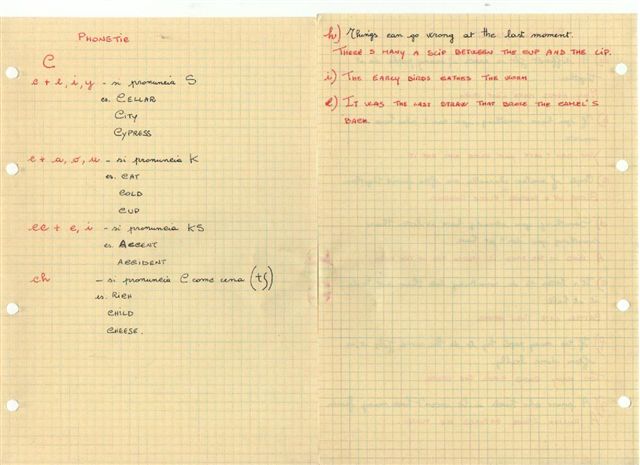 PHONETIC
C
c + e, i, y - si pronuncia S
es. CELLAR
CITY
CYPRESS
c + a, o, u - si pronuncia K
es. CAT
COLD
CUP
cc + e, i - si pronuncia KS
es. ACCENT
ACCIDENT
ch - si pronuncia C come cena (tʃ)
es. RICH
CHILD
CHEESE.
h) Things can go wrong at the last moment.
THERE'S MANY A SLIP BETWEEN THE CUP AND THE LIP.
i) THE EARLY BIRDS CATHES THE WORM
l) IT WAS THE LAST STRAW THAT BROKE THE CAMEL'S
BACK.